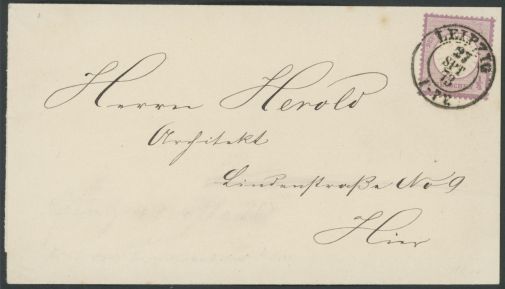 LEIPZIG
27
SPT
73
Herrn Herold
Architekt
Lindenstraße No 9
Hier